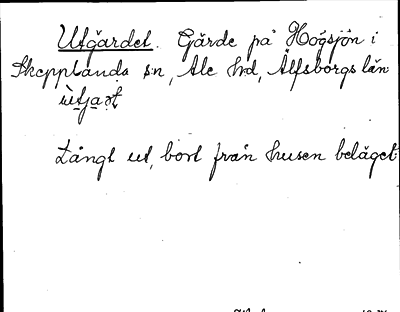 Utgärdet. Gärde på Högsjön i
Skepplanda sn, Ale hd, Älfsborgs län
Långt ut, bort från husen beläget